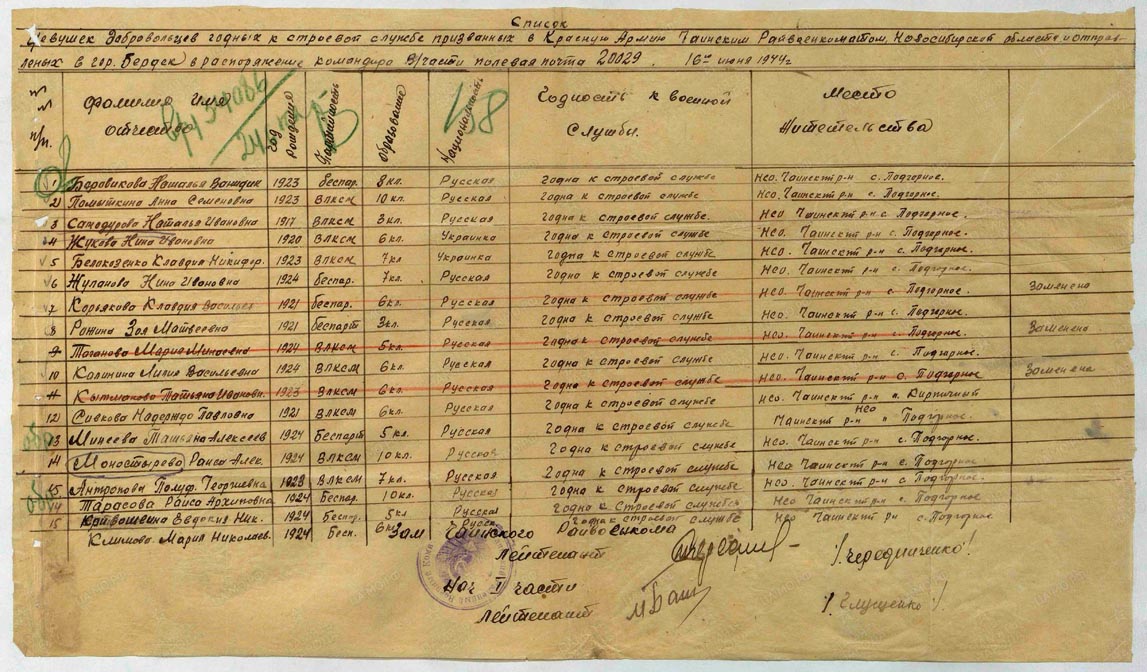 Список
девушек добровольцев годных к строевой службе призванных в Красную Армию Чаинским Райвоенкоматом, Новосибирской области и отправ-
леных в гор. Бердск в распоряжение командира В/части полевая почта 20029. 16го июня 1944г
№ п/п. Фамилия имя отчество год рождения Партийность образование Национальность Годность к военной службы. Место жительства
48
1 Боровикова Наталья 1923 Беспар. 8 кл. Русская Годна к строевой службе Нсо. Чаинский р-н с. Подгорное.
2 Помыткина Анна Семеновна 1923 Влксм 10 кл. Русская Годна к строевой службе Нсо. Чаинский р-н с. Подгорное.
3 Самодурова Наталья Ивановна 1917 Влксм 3 кл. Русская Годна к строевой службе Нсо. Чаинский р-н с. Подгорное.
4 Жукова Нина Ивановна 1920 ВЛКСМ 6 кл. Украинка Годна к строевой службе Нсо. Чаинский р-н с. Подгорное.
5 Клавдия Никифор. 1923 ВЛКСМ 7 кл Украинка Годна к строевой службе Нсо. Чаинский р-н с. Подгорное.
6 Жуланова Нина Ивановна 1924 Беспар. 7 кл. Русская Годна к строевой службе Нсо. Чаинский р-н с. Подгорное.
7 Корякова Клавдия Василье 1921 Беспар. 6 кл. Русская Годна к строевой службе Нсо. Чаинский р-н с. Подгорное. Заменена
8 Рожина Зоя Матвеевна 1921 Беспарт 3 кл. Русская Годна к строевой службе Нсо. Чаинский р-н с. Подгорное.
9 Мария 1924 ВЛКСМ 5 кл. Русская Годна к строевой службе Нсо. Чаинский р-н с. Подгорное. Заменена
10 Калинина Лидия Васильевна 1924 ВЛКСМ 6 кл. Русская Годна к строевой службе Нсо. Чаинский р-н с. Подгорное.
11 Кытманова Татьяна Ивановн. 1923 ВЛКСМ 6 кл. Русская Годна к строевой службе Нсо. Чаинский р-н с. Подгорное Заменена
12 Сивкова Надежда Павловна 1921 ВЛКСМ 6 кл. Русская Годна к строевой службе Нсо. Чаинский р-н п. Кирпичный
13 Минеева Татьяна Алексеев 1924 Беспарт 5 кл. Русская Годна к строевой службе Чаинский р-н Нсо Подгорное.
14 Моностырева Раиса Алек. 1924 ВЛКСМ 10 кл. Русская Годна к строевой службе Нсо. Чаинский р-н с. Подгорное.
15 Антропова Георгиевна 1923 ВЛКСМ 7 кл. Русская Годна к строевой службе Нсо. Чаинский р-н с. Подгорное.
14 Тарасова Раиса Архиповна 1924 Беспар. 10 кл. Русская Годна к строевой службе Нсо. Чаинский р-н с. Подгорное
15 Кривошеина Евдокия Ник. 1924 Беспар. 5 кл Русская Годна к строевой службе Нсо Чаинский р-н с. Подгорное
Климова Мария Николаев. 1924 Бесп. 6 кл Русск
Зам Чаинского Райвоенкома
Лейтенант /Чередниченко/
Нач I части
Лейтенант /Глущенко/